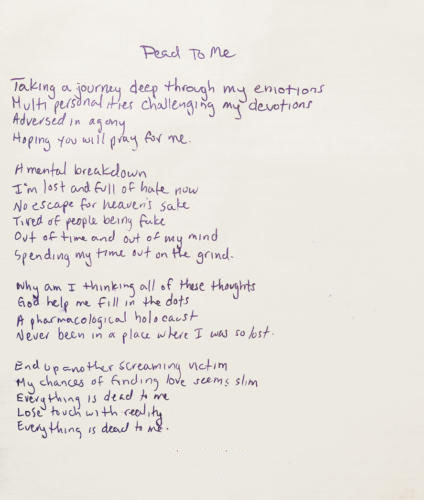 Dead To Me
Taking a journey deep through my emotions
Multi personalities challenging my devotions
Adversed in agony
Hoping you will pray for me.
A mental breakdown
I'm lost and full of hate now
No escape for heaven's sake
Tired of people being fake
Out of time and out of my mind
Spending my time out on the grind.
Why am I thinking all of these thoughts
God help me fill in the dots
A pharmacological holocaust
Never been in a place where I was so lost.
End up another screaming victim
My chances of finding love seems slim
Everything is dead to me
Lose touch with reality
Everything is dead to me.